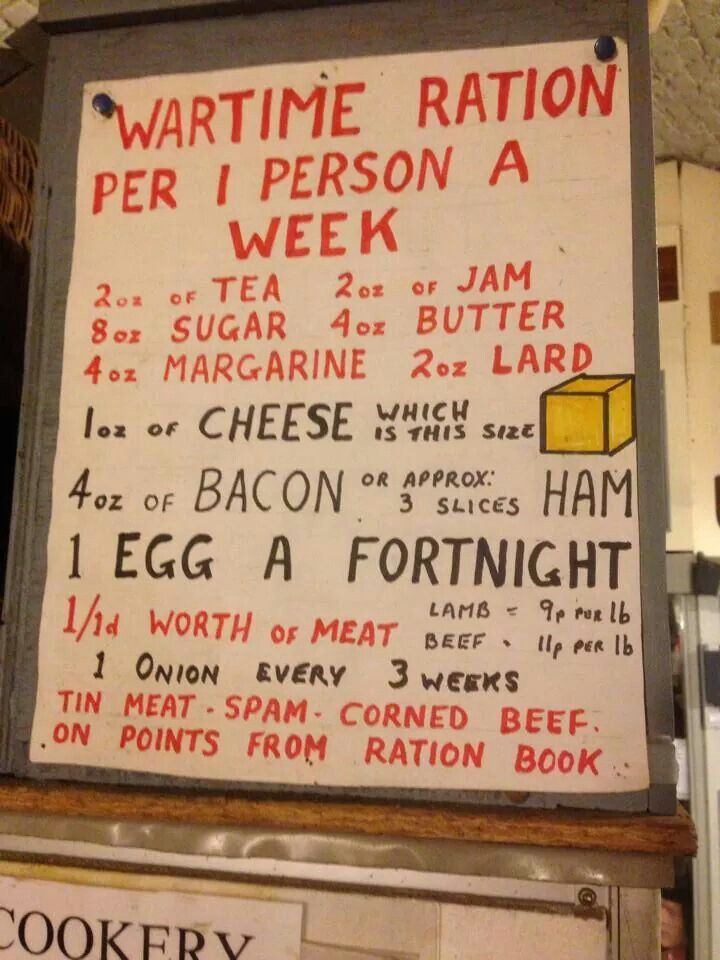 WARTIME RATION
PER 1 PERSON A
WEEK
2oz OF TEA 2oz OF JAM
8oz SUGAR 4oz BUTTER
4oz MARGARINE 2oz LARD
1oz OF CHEESE WHICH IS THIS SIZE
4oz OF BACON OR APPROX: 3 SLICES HAM
1 EGG A FORTNIGHT
1/1d WORTH OF MEAT LAMB = 9p PER lb
BEEF - 11p PER lb
1 ONION EVERY 3 WEEKS
TIN MEAT - SPAM - CORNED BEEF.
ON POINTS FROM RATION BOOK
COOKERY